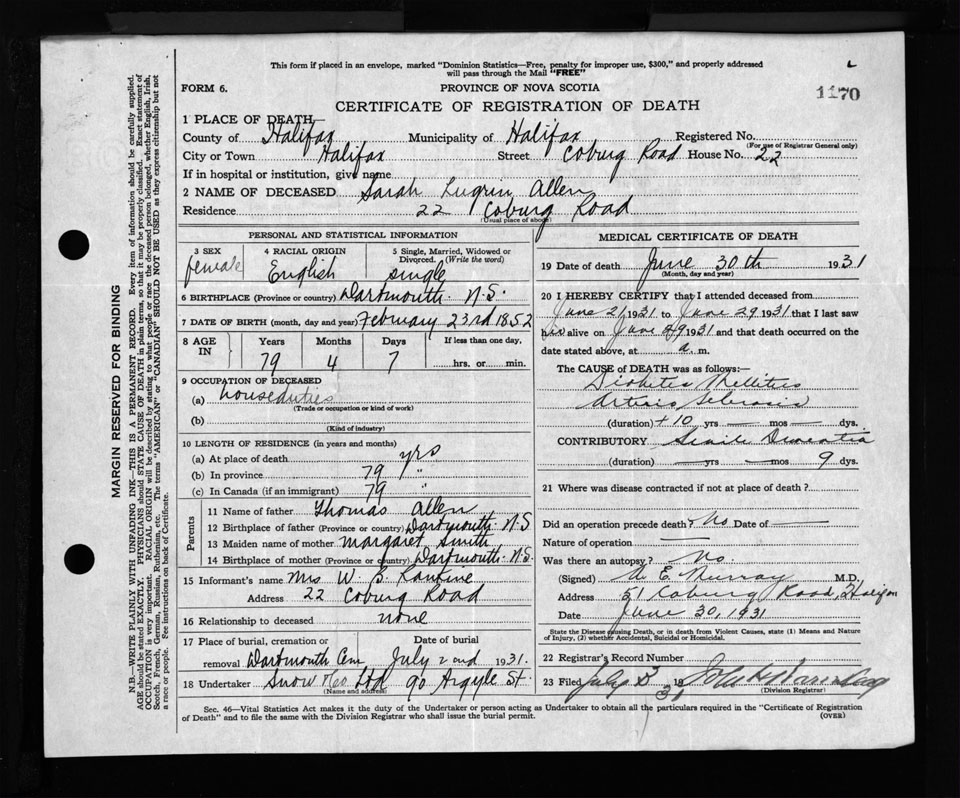 This form if placed in an envelope, marked "Dominion Statistics—Free, penalty for improper use, $300," and properly addressed
will pass through the Mail "FREE"
FORM 6.
PROVINCE OF NOVA SCOTIA
1170
CERTIFICATE OF REGISTRATION OF DEATH
1 PLACE OF DEATH—
County of Halifax Municipality of Halifax Registered No.
(For use of Registrar General only)
City or Town Halifax Street Coburg Road House No. 22
If in hospital or institution, give name
2 NAME OF DECEASED Sarah Lugrin Allen
Residence 22 Coburg Road
(Usual place of abode)
PERSONAL AND STATISTICAL INFORMATION
3 SEX female
4 RACIAL ORIGIN English
5 Single, Married, Widowed or Divorced. (Write the word) single
6 BIRTHPLACE (Province or country) Dartmouth N.S.
7 DATE OF BIRTH (month, day and year) February 23rd 1852
8 AGE IN Years 79 Months 4 Days 7 If less than one day,
hrs. or min.
9 OCCUPATION OF DECEASED
(a) houseduties
(Trade or occupation or kind of work)
(b)
(Kind of industry)
10 LENGTH OF RESIDENCE (in years and months)
(a) At place of death yrs
(b) In province 79 "
(c) In Canada (if an immigrant) 79 "
Parents
11 Name of father Thomas Allen
12 Birthplace of father (Province or country) Dartmouth N.S
13 Maiden name of mother Margaret Smith
14 Birthplace of mother (Province or country) Dartmouth N.S.
15 Informant's name Mrs W. B. Rankine
Address 22 Coburg Road
16 Relationship to deceased none
17 Place of burial, cremation or removal Dartmouth Cem Date of burial July 2nd 1931.
18 Undertaker Snow & Co Ltd 90 Argyle St.
(Name and address)
MEDICAL CERTIFICATE OF DEATH
19 Date of death June 30th 1931
(Month, day and year)
20 I HEREBY CERTIFY that I attended deceased from
June 21 1931 to June 29 1931 that I last saw
alive on June 29 1931 and that death occurred on the
date stated above, at a. m.
The CAUSE of DEATH was as follows:—
Diabetes Mellitus
Arterio Sclerosis
(duration) +10 yrs — mos — dys.
CONTRIBUTORY Senile Dementia
(duration) — yrs — mos 9 dys.
21 Where was disease contracted if not at place of death?
Did an operation precede death? No Date of —
Nature of operation —
Was there an autopsy? No
(Signed) E. Murray M.D.
Address 51 Coburg Road, Halifax
Date June 30, 1931
State the Disease causing Death, or in death from Violent Causes, state (1) Means and Nature
of Injury, (2) whether Accidental, Suicidal or Homicidal.
22 Registrar's Record Number
23 Filed July 3 1931
(Division Registrar)
Sec. 46—Vital Statistics Act makes it the duty of the Undertaker or person acting as Undertaker to obtain all the particulars required in the "Certificate of Registration
of Death" and to file the same with the Division Registrar who shall issue the burial permit.
(OVER)
MARGIN RESERVED FOR BINDING
N.B.—WRITE PLAINLY WITH UNFADING INK—THIS IS A PERMANENT RECORD. Every item of information should be carefully supplied.
AGE should be stated EXACTLY. PHYSICIANS should STATE CAUSE OF DEATH in plain terms, so that it may be properly classified. Exact statement of
OCCUPATION is very important. RACIAL ORIGIN will be described by stating to what people or race the deceased person belonged, whether English, Irish,
Scotch, French, German, Russian, Ruthenian, etc. The terms "AMERICAN" or "CANADIAN" SHOULD NOT BE USED as they express citizenship but not
a race or people. See instructions on back of Certificate.